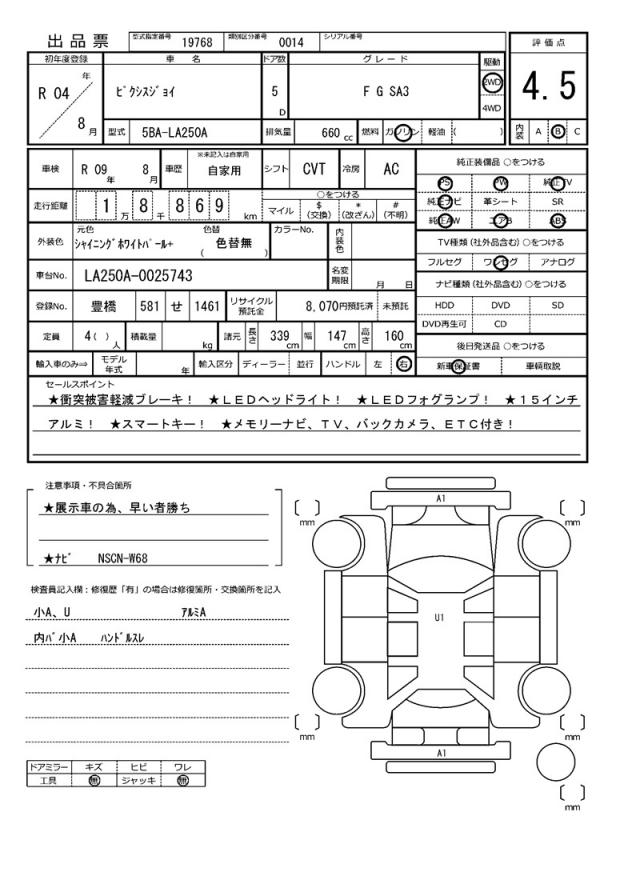 出品票 型式指定番号 19768 類別区分番号 0014 シリアル番号
初年度登録 車名 ドア数 グレード 駆動 評価点
R 04 年 8 月 ﾋﾟｸｼｽｼﾞｮｲ 5 D F G SA3 2WD 4WD 4.5
型式 5BA-LA250A 排気量 660 cc 燃料 ガソリン 軽油 ( ) 内装 A B C
車検 R 09 年 8 月 車歴 ※未記入は自家用 自家用 シフト CVT 冷房 AC
純正装備品 ○をつける
PS PW 純正TV
純正ナビ 革シート SR
純正AW エアB ABS
走行距離 1 万 8 千 8 6 9 km
○をつける
マイル $ (交換) * (改ざん) # (不明)
TV種類 (社外品含む) ○をつける
フルセグ ワンセグ アナログ
外装色 元色 ｼｬｲﾆﾝｸﾞﾎﾜｲﾄﾊﾟｰﾙ+ 色替 ( 色替無 ) カラーNo. 内装色
ナビ種類 (社外品含む) ○をつける
HDD DVD SD
DVD再生可 CD
車台No. LA250A-0025743 名変期限 月 日
登録No. 豊橋 581 せ 1461 リサイクル預託金 8,070円預託済 未預託
定員 4( ) 人 積載量 kg 諸元 長さ 339 cm 幅 147 cm 高さ 160 cm
後日発送品 ○をつける
新車保証書 車輌取説
輸入車のみ⇨ モデル年式 年 輸入区分 ディーラー 並行 ハンドル 左 右
セールスポイント
★衝突被害軽減ブレーキ！ ★ＬＥＤヘッドライト！ ★ＬＥＤフォグランプ！ ★１５インチ
アルミ！ ★スマートキー！ ★メモリーナビ、ＴＶ、バックカメラ、ＥＴＣ付き！
注意事項・不具合箇所
★展示車の為、早い者勝ち
★ﾅﾋﾞ NSCN-W68
検査員記入欄：修復歴「有」の場合は修復箇所・交換箇所を記入
小A、U ｱﾙﾐA
内ﾊﾞ小A ﾊﾝﾄﾞﾙｽﾚ
A1
mm mm
U1
mm mm
A1
mm
ドアミラー キズ ヒビ ワレ
工具 無 ジャッキ 無